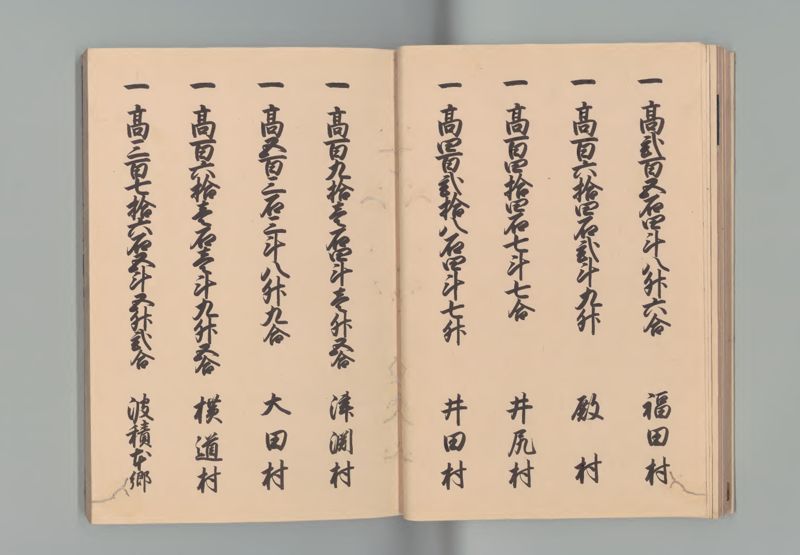 一 高弐百五石四斗八升六合 福田村
一 高百六拾四石弐斗九升 殿村
一 高百四拾四石七斗七合 井尻村
一 高四百弐拾八石四斗七升 井田村
一 高百九拾壱石四斗壱升五合 津淵村
一 高五百三石三斗八升九合 大田村
一 高百六拾壱石壱斗九升五合 横道村
一 高三百七拾六石五斗五升弐合 波積本郷